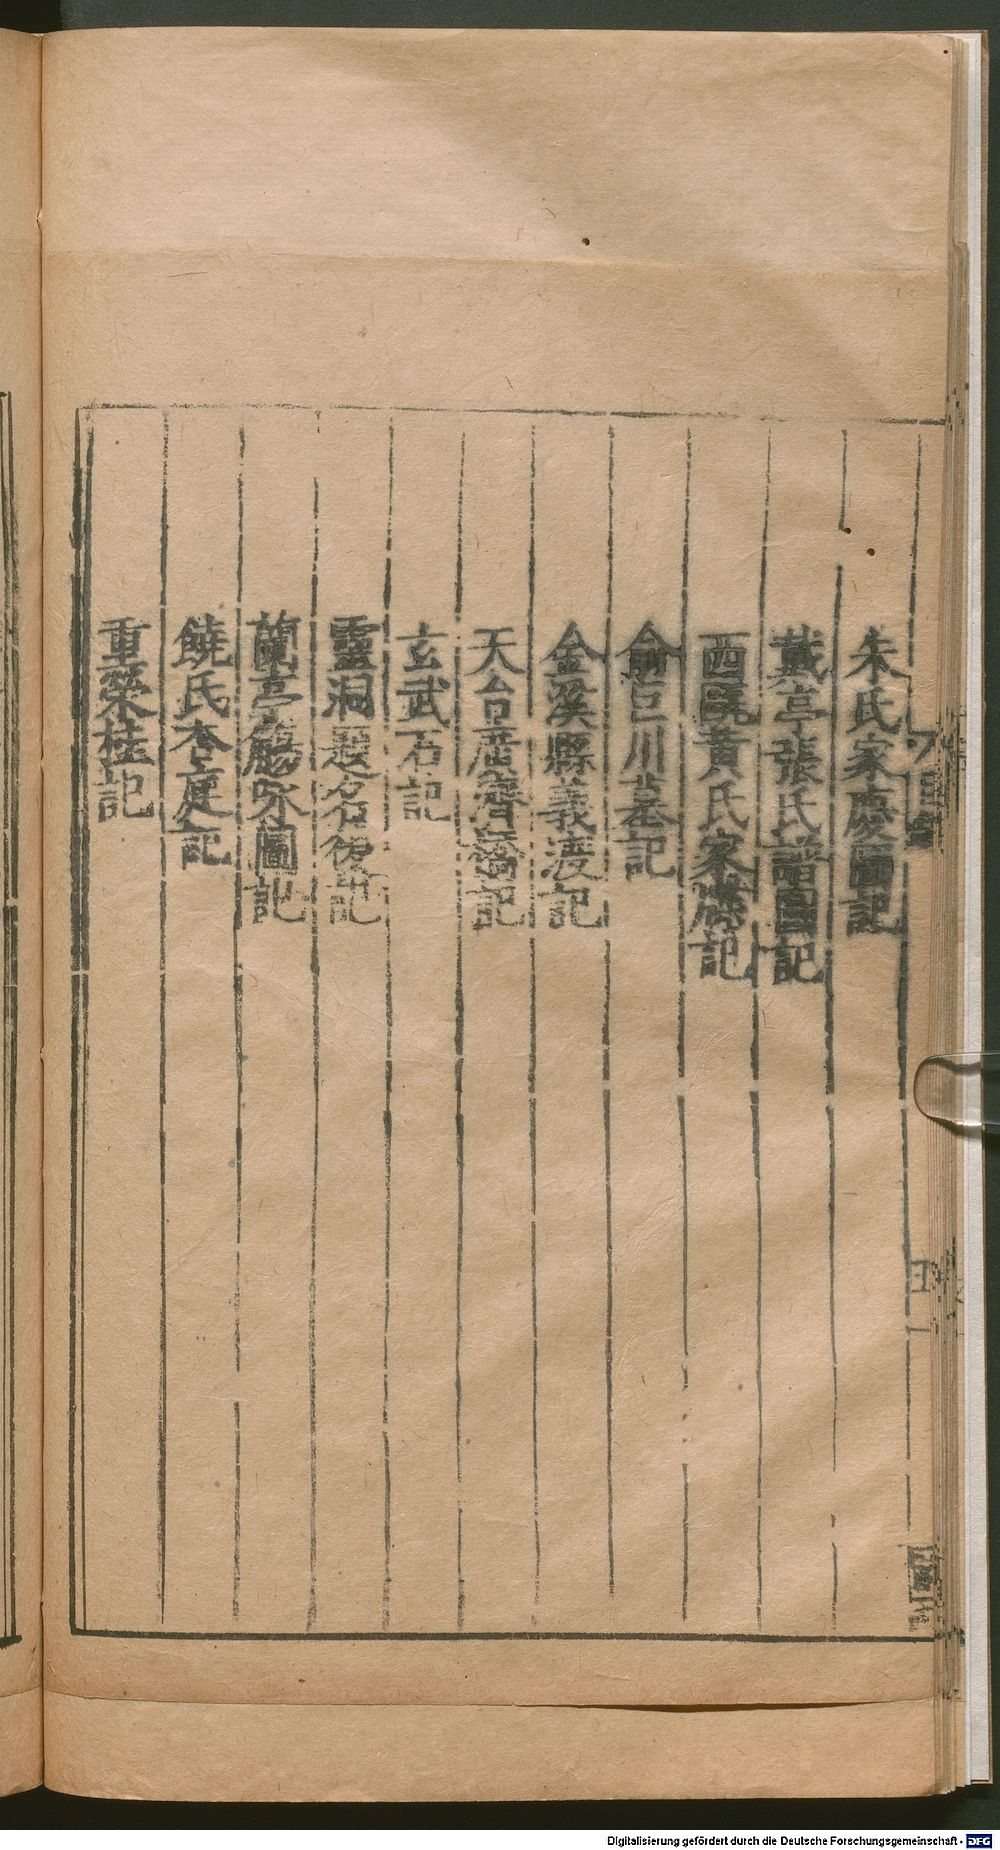 朱氏家慶圖記
戴亭張氏譜圖記
西隅黃氏家牒記
俞巨川墓記
金溪縣義渡記
天台歷濟橋記
玄武石記
靈洞題名後記
蘭亭觴咏圖記
饒氏杏庭記
重榮桂記
Digitalisierung gefördert durch die Deutsche Forschungsgemeinschaft - DFG